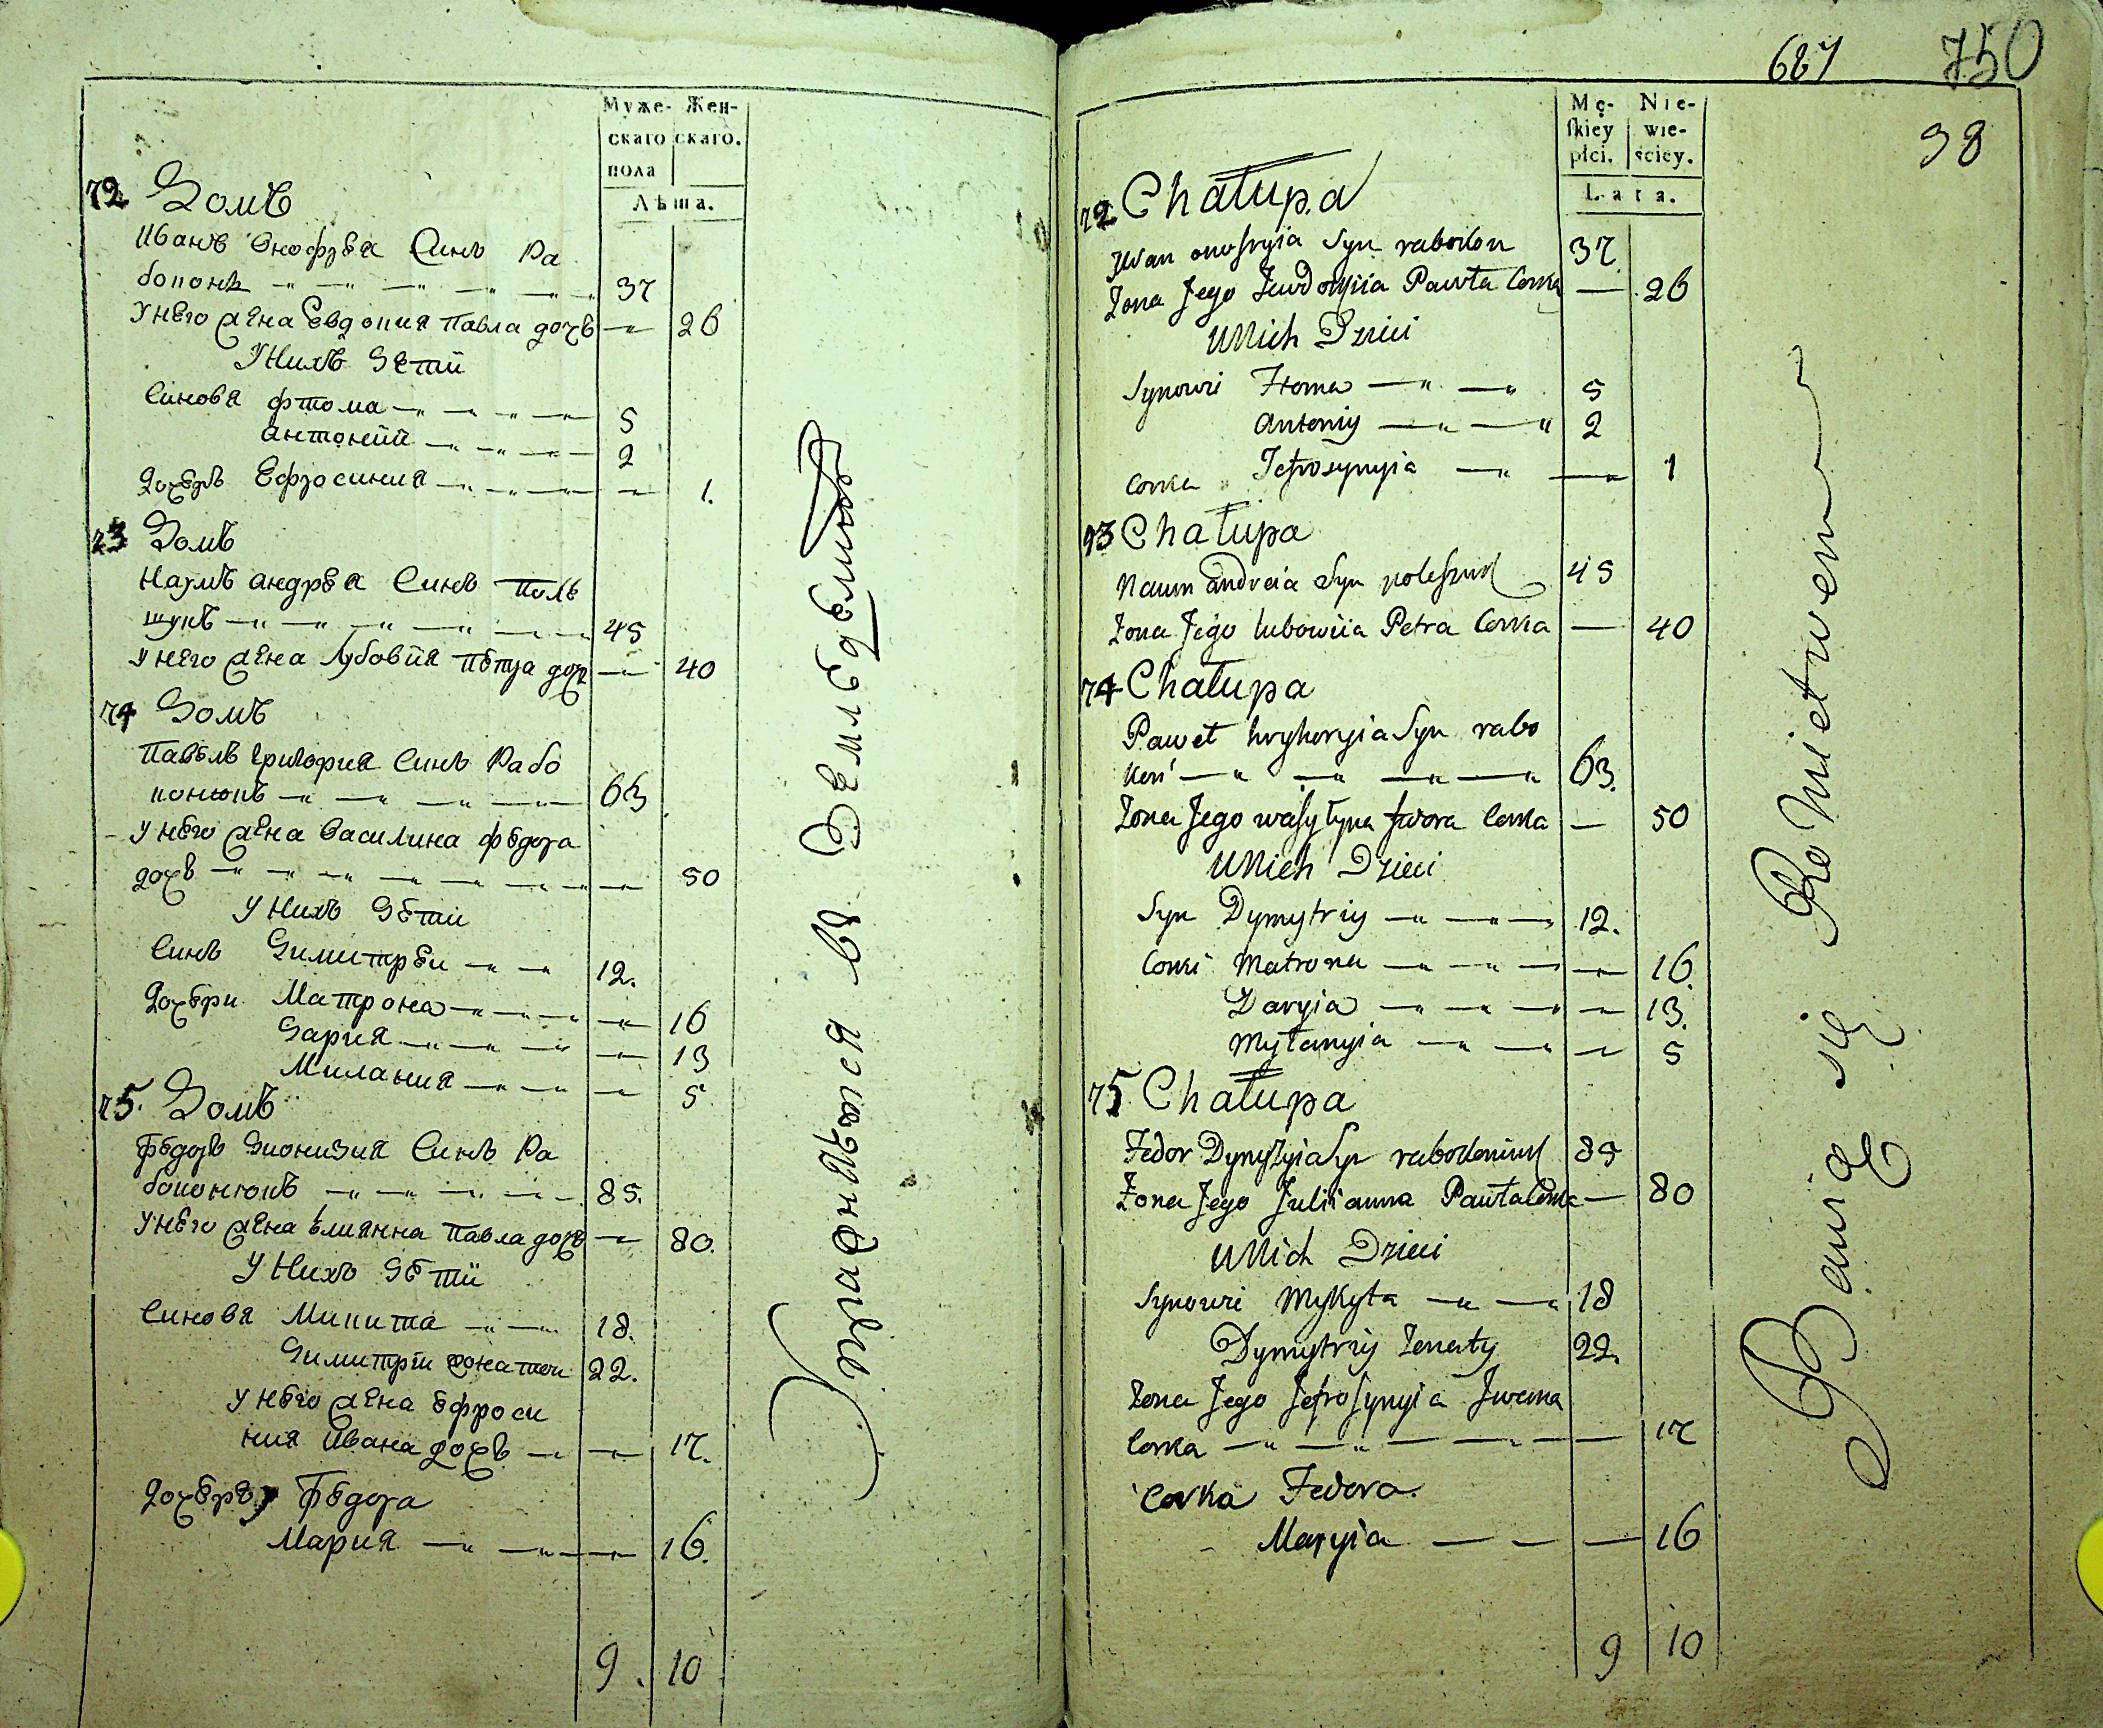 Муже- Жен-
скаго скаго.
пола
Лѣта.
72 Домъ
Иванъ Онофрѣя Синъ Ра
боконь 37
У него жена Евдокия Павла дочь 26
У нихъ дети
Синовя Фтома 5
Антоний 2
дочерь Ефросиния 1.
73 Домъ
Наумъ андрѣя Синъ Поле
шукъ 45
У него жена Лубовия Петра дочь 40
74 Домъ
Павелъ Григория Синъ Рабо
конюкъ 63
У него жена Василина Федора
дочь 50
У нихъ дети
Синъ Димитрѣи 12.
Дочери Матрона 16
Дария 13
Милания 5
75. Домъ
Федоръ Дионизия Синъ Ра
боконюкъ 85.
У него жена Елианна Павла дочь 80.
У нихъ дети
Синовя Микита 18.
Димитрѣи жонатеи 22.
У него жена Ефроси
ния Ивана дочь 17.
Дочерь у Федора
Мария 16.
9. 10
Упражняются въ Земледелию
687 750
98
Mę- Nie-
skiey wie-
płci. ściey.
Lata.
72 Chałupa
Jwan onofryia Syn rabokon 37
Zona Jego Jewdokyia Pawła Corka 26
U Nich Dzieci
Synowi Ftoma 5
Antoniy 2
Corka Jefrosynyia 1
73 Chałupa
Naum andreia Syn poleszuk 45
Zona Jego lubowiia Petra Corka 40
74 Chałupa
Paweł hryhoryia Syn rabo
kon 63.
Zona Jego wasyłyna fwora Corka 50
U Nich Dzieci
Syn Dymytriy 12.
Corki Matrona 16.
Daryia 13.
Myłanyia 5
75 Chałupa
Fedor Dynyzyia Syn rabokoniuk 85
Zona Jego Juliianna Pawła Corka 80
U Nich Dzieci
Synowi Mykyta 18
Dymytriy Zonaty 22.
Zona Jego Jefrosynyia Jwana
Corka 17
Corka Fedora.
Maryia 16
9 10
Bawią się Rolnictwem